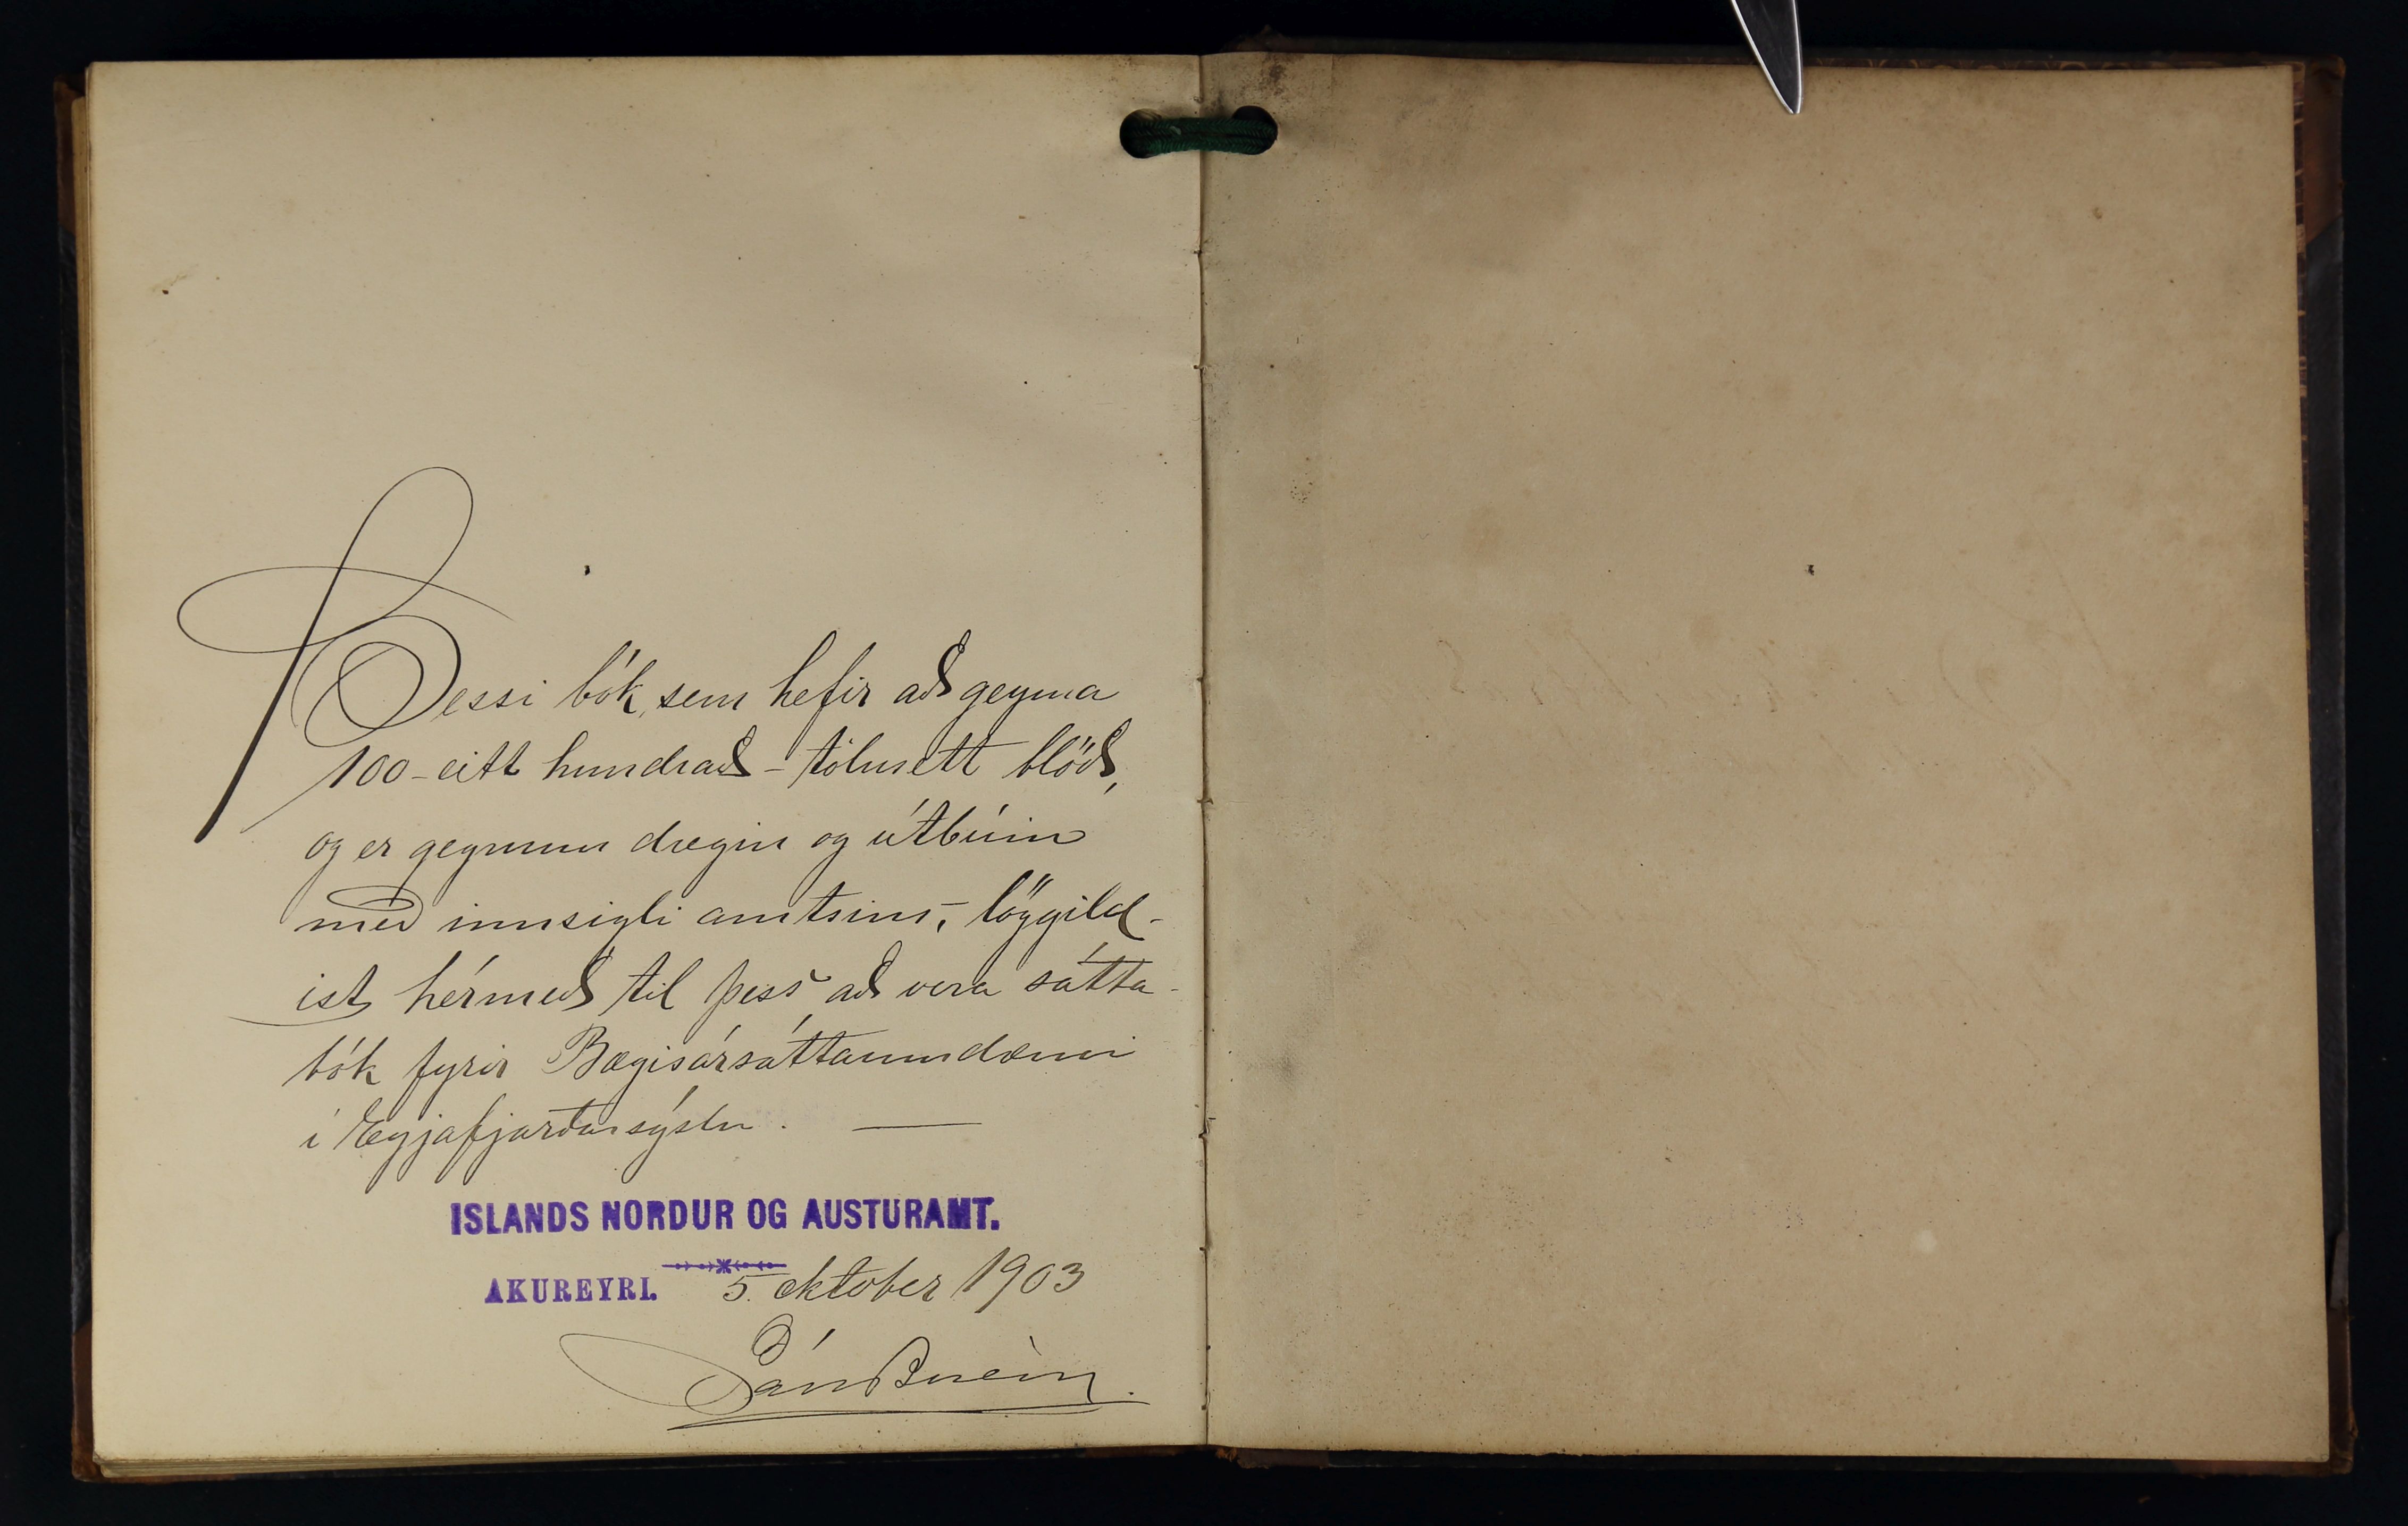 Þessi bók, sem hefir að geyma
100 - eitt hundrað - tölusett blöð,
og er gegnum dregin og útbúin
með innsigli amtsins, löggild-
ist hérmeð til þess að vera sátta-
bók fyrir Bægisársáttaumdæmi
í Eyjafjarðarsýslu. —
ISLANDS NORDUR OG AUSTURAMT.
AKUREYRI. 5. oktober 1903
Páll Briem.